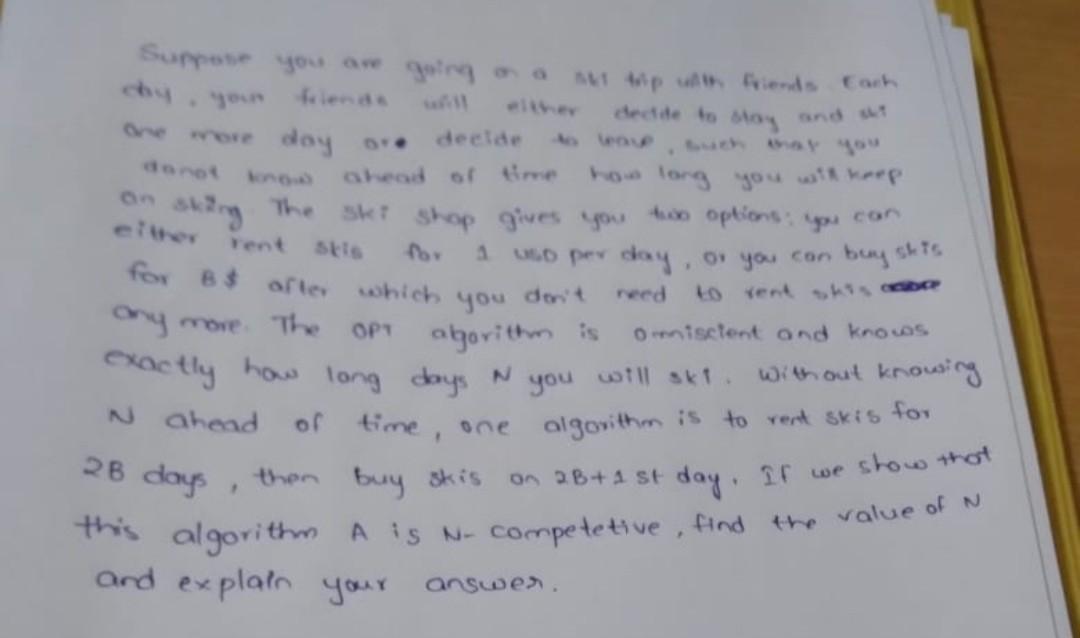 Suppose you are going on a ski trip with friends. Each
day, your friends will either decide to stay and ski
one more day are decide to leave, such that you
donot know ahead of time how long you will keep
on skiing. The ski shop gives you two options: you can
either rent skis for 1 USD per day, or you can buy skis
for B$ after which you don't need to rent skis
any more. The OPT algorithm is omniscient and knows
exactly how long days N you will ski. Without knowing
N ahead of time, one algorithm is to rent skis for
2B days, then buy skis on 2B+1 st day. If we show that
this algorithm A is N- competetive, find the value of N
and explain your answer.